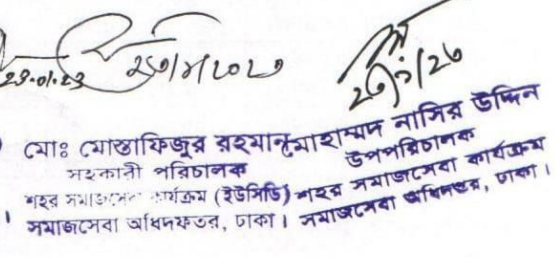 23.01.23
মোঃ মোস্তাফিজুর রহমান
সহকারী পরিচালক
শহর সমাজসেবা কার্যক্রম (ইউসিডি)
সমাজসেবা অধিদফতর, ঢাকা।
মোহাম্মদ নাসির উদ্দিন
উপপরিচালক
শহর সমাজসেবা কার্যক্রম
সমাজসেবা অধিদপ্তর, ঢাকা।